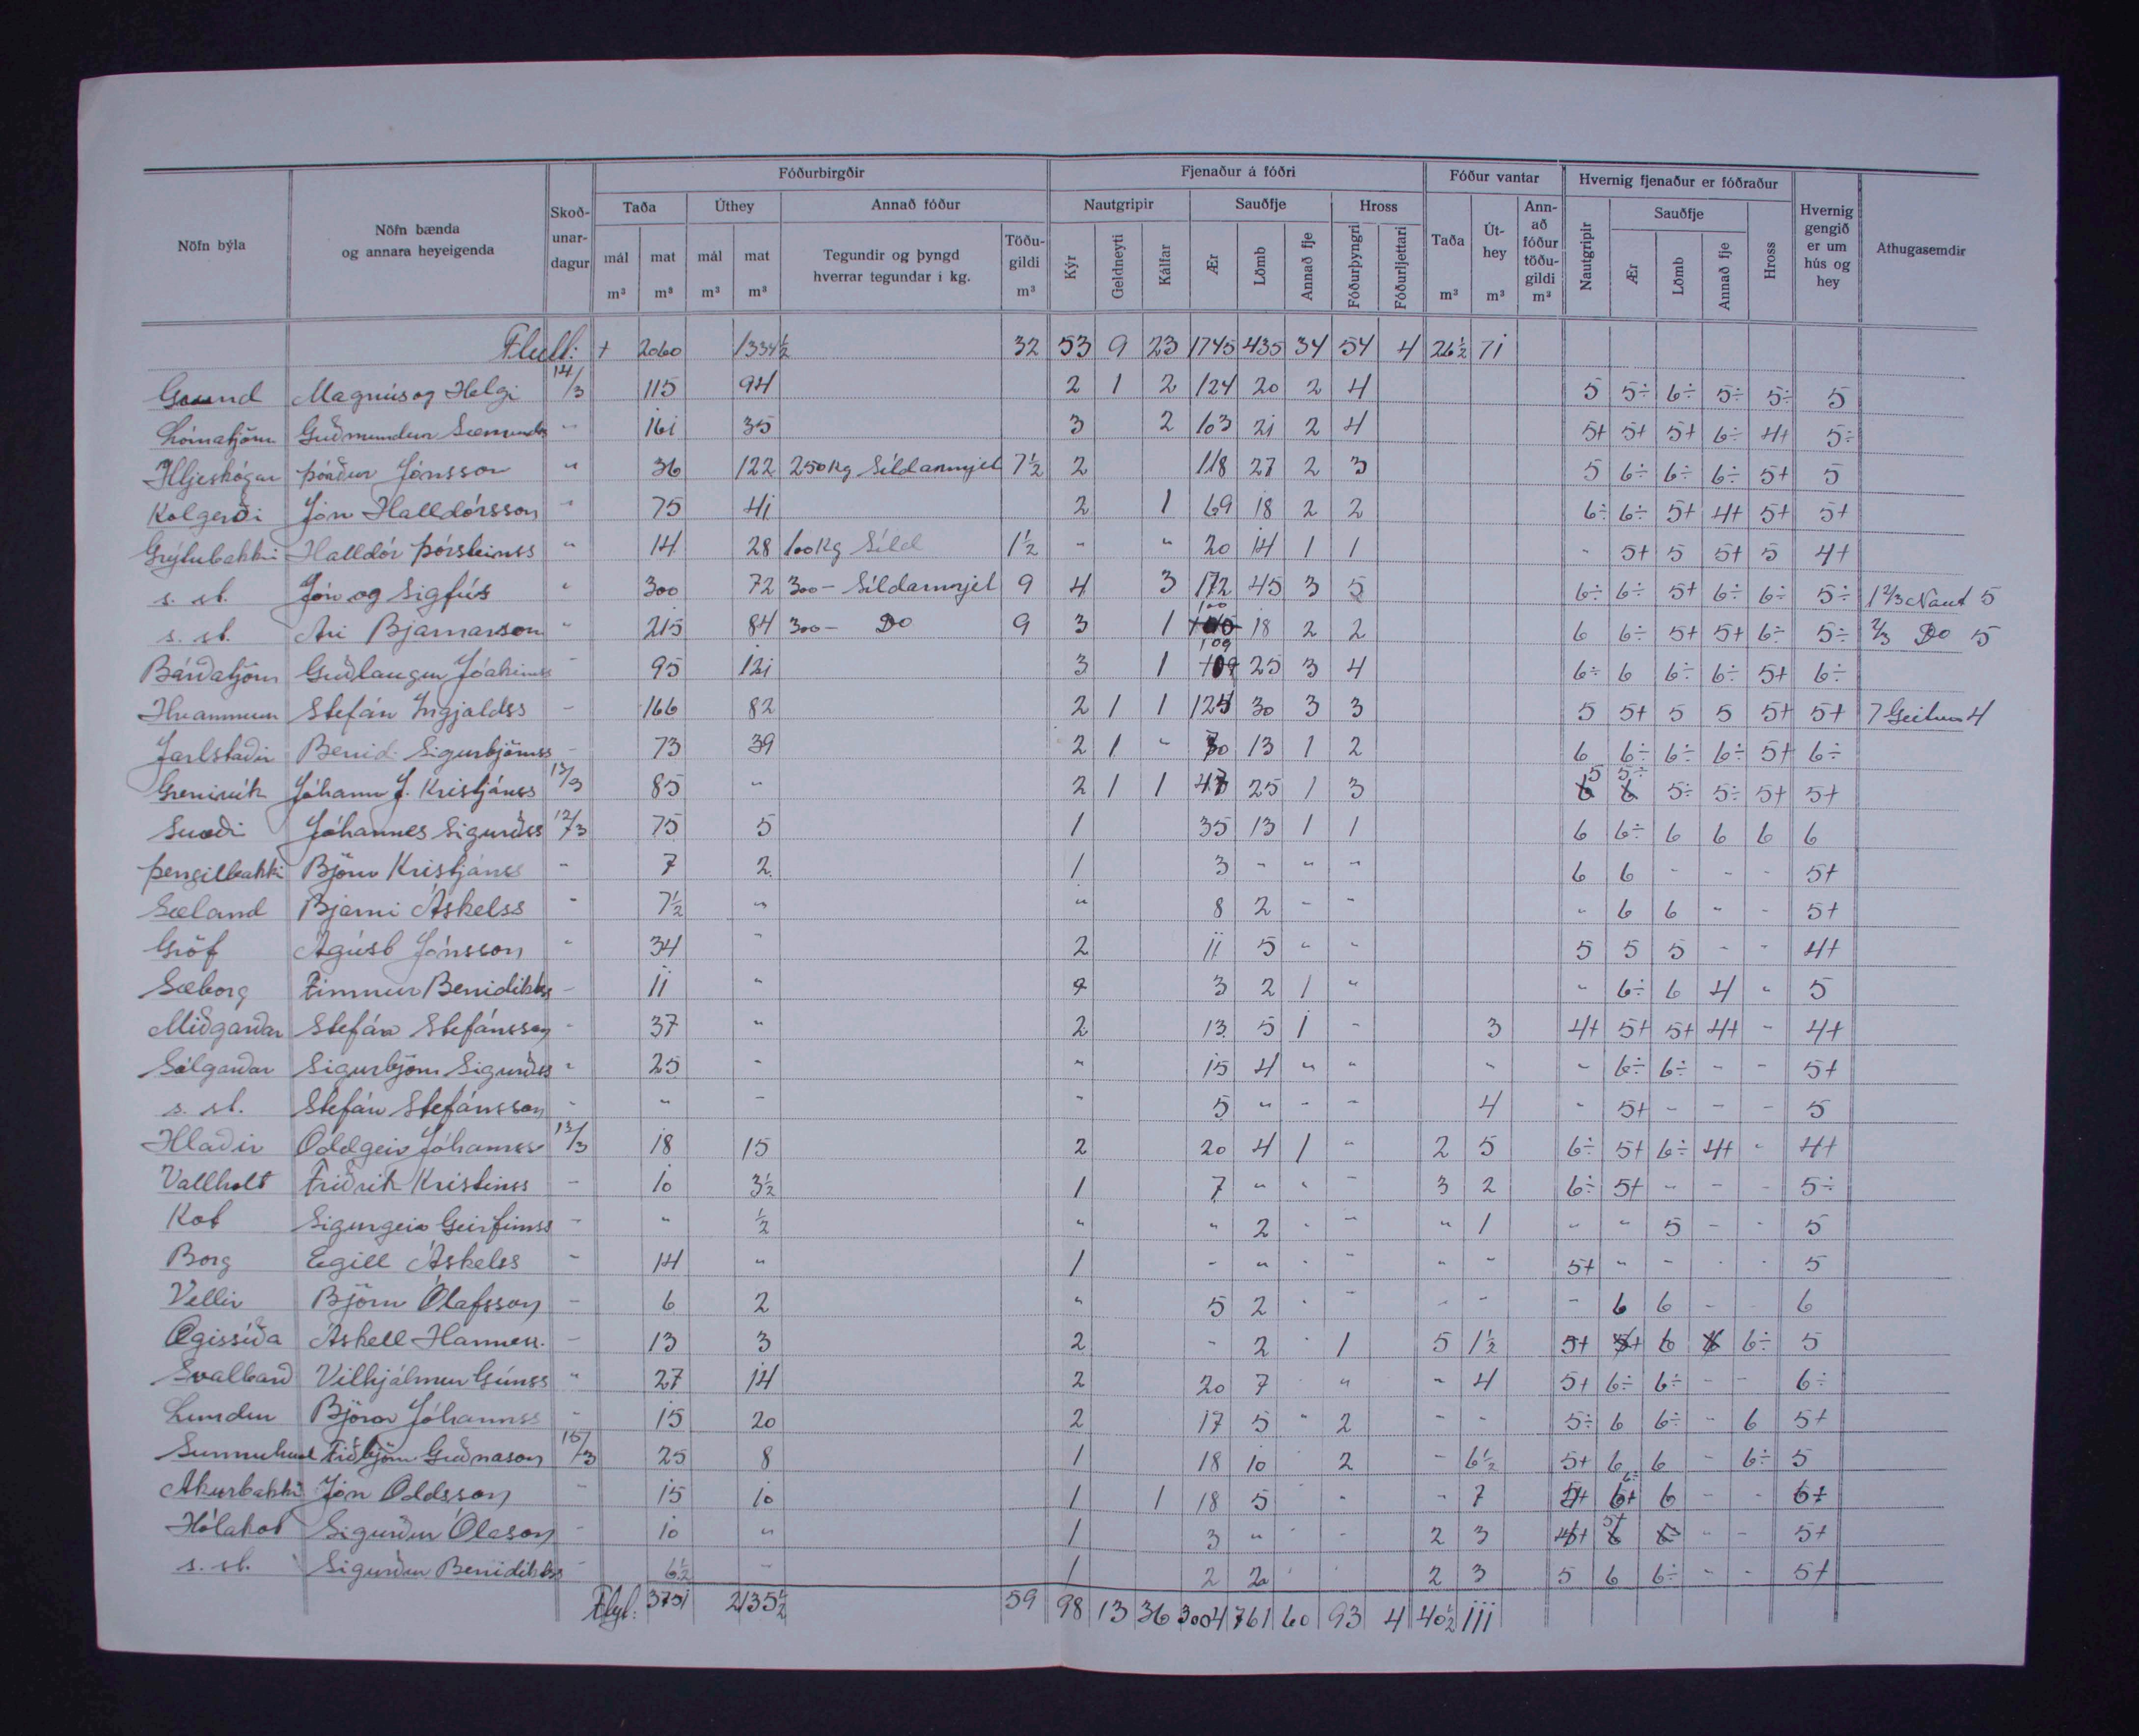 Fóðurbirgðir Fjenaður á fóðri Fóður vantar Hvernig fjenaður er fóðraður
Nöfn býla Nöfn bænda og annara heyeigenda Skoð-unar-dagur Taða Úthey Annað fóður Nautgripir Sauðfje Hross Taða Út-hey Ann-að fóður töðu-gildi Nautgripir Sauðfje Hross Hvernig gengið er um hús og hey Athugasemdir
mál mat mál mat Tegundir og þyngd hverrar tegundar í kg. Töðu-gildi Kýr Geldneyti Kálfar Ær Lömb Annað fje Fóðurþyngri Fóðurljettari Ær Lömb Annað fje
m³ m³ m³ m³ m³ m³ m³ m³
Flutt: + 2060 1334½ 32 53 9 23 1745 435 34 54 4 26½ 71
Grund Magnús og Helgi 14/3 115 94 2 1 2 124 20 2 4 5 5÷ 6÷ 5÷ 5÷ 5
Lómatjörn Guðmundur Sæmunds " 161 35 3 2 103 21 2 4 5+ 5+ 5+ 6÷ 4+ 5÷
Hljeskógar Þórður Jónsson " 36 122 250 kg Síldarmjel 7½ 2 118 27 2 3 5 6÷ 6÷ 6÷ 5+ 5
Kolgerði Jón Halldórsson " 75 41 2 1 69 18 2 2 6÷ 6÷ 5+ 4+ 5+ 5+
Grýtubakki Halldór Þorsteinss " 14 28 100 kg Síld 1½ - " 20 14 1 1 - 5+ 5 5+ 5 4+
s. st. Jón og Sigfús " 300 72 300 - Síldarmjel 9 4 3 172 45 3 5 6÷ 6÷ 5+ 6÷ 6÷ 5÷ 1 2/3 Naut 5
s. st. Ari Bjarnarson " 215 84 300 - Do 9 3 1 100 18 2 2 6 6÷ 5+ 5+ 6÷ 5÷ 2/3 Do 5
Bárðatjörn Guðlaugur Jóakimss - 95 121 3 1 109 25 3 4 6÷ 6 6÷ 6÷ 5+ 6÷
Hvammur Stefán Ingjaldss - 166 82 2 1 1 124 30 3 3 5 5+ 5 5 5+ 5+ 7 Geitur 4
Jarlstaðir Benid. Sigurbjörnss - 73 39 2 1 " 70 13 1 2 6 6÷ 6÷ 6÷ 5+ 6÷
Grenivík Jóhann J. Kristjánss 13/3 85 " 2 1 1 47 25 1 3 5 5÷ 5÷ 5÷ 5+ 5+
Svæði Jóhannes Sigurðss 12/3 75 5 1 35 13 1 1 6 6÷ 6 6 6 6
Þengilbakki Björn Kristjánss " 7 2 1 3 - " - 6 6 - - - 5+
Sæland Bjarni Áskelss - 7½ " " 8 2 - - - 6 6 - - 5+
Gröf Ágúst Jónsson " 34 - 2 11 5 " - 5 5 5 - - 4+
Sæborg Finnur Benidiktss - 11 " 3 2 1 " - 6÷ 6 4 " 5
Miðgarðar Stefán Stefánsson - 37 " 2 13 5 1 - 3 4+ 5+ 5+ 4+ - 4+
Sólgarðar Sigurbjörn Sigurðss " 25 - " 15 4 " " - - 6÷ 6÷ - - 5+
s. st. Stefán Stefánsson - " - - 5 " - - 4 - 5+ - - - 5
Hlaðir Oddgeir Jóhannss 13/3 18 15 2 20 4 1 " 2 5 6÷ 5+ 6÷ 4+ - 4+
Vallholt Friðrik Kristinss - 10 3½ 1 7 " " - 3 2 6÷ 5+ - - - 5÷
Kot Sigurgeir Geirfinnss - " ½ " " 2 - - " 1 - " 5 - - 5
Borg Egill Áskelss - 14 " 1 - " - - " - 5+ " - - - 5
Vellir Björn Ólafsson - 6 2 " 5 2 - - - - - 6 6 - 6
Ægissíða Áskell Hanness. - 13 3 2 - 2 - 1 5 1½ 5+ 6 6÷ 5
Svalbarð Vilhjálmur Grímss " 27 14 2 20 7 - " - 4 5+ 6÷ 6÷ - - 6÷
Lundur Björn Jóhannss - 15 20 2 17 5 " 2 - - 5÷ 6 6÷ - 6 5+
Sunnuhvol Friðbjörn Guðnason 15/3 25 8 1 18 10 2 - 6½ 5+ 6 6 - 6÷ 5
Akurbakki Jón Oddsson - 15 10 1 1 18 5 - - 7 6÷ 6 - -
Hólakot Sigurður Ólason - 10 " 1 3 " - - 2 3 5+ - - 5+
s. st. Sigurður Benidiktss - 6½ - 1 2 2 2 3 5 6 6÷ - - 5+
Flyt: 3731 2135½ 59 98 13 36 3004 761 60 93 4 40½ 111